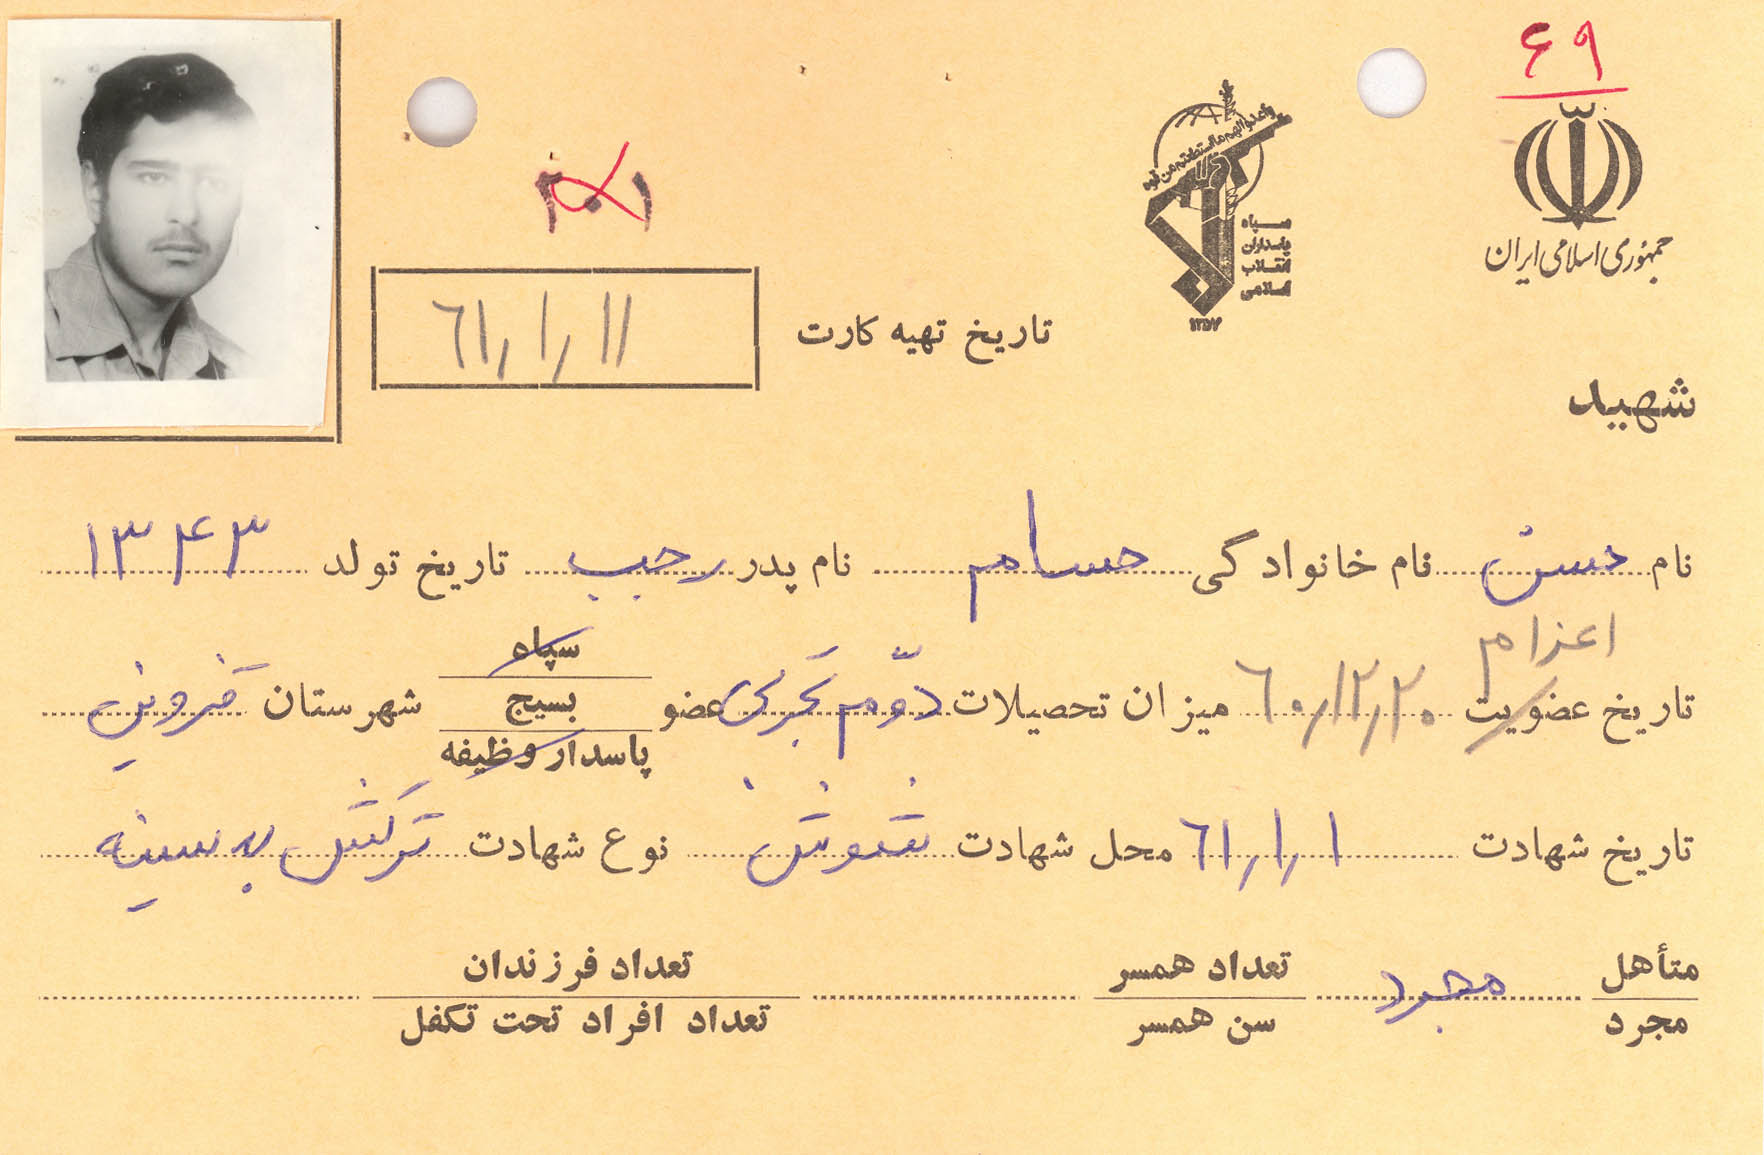 ۶۹
جمهوری اسلامی ایران
واعدوا لهم ما استطعتم من قوه
سپاه
پاسداران
انقلاب
اسلامی
۱۳۵۷
۲۰۱
تاریخ تهیه کارت ۶۱/۱/۱۱
شهید
نام حسن نام خانوادگی حسام نام پدر رجب تاریخ تولد ۱۳۴۳
اعزام
سپاه
تاریخ عضویت ۶۰/۱۲/۲۰ میزان تحصیلات دوّم تجربی عضو بسیج شهرستان قزوین
پاسدار وظیفه
تاریخ شهادت ۶۱/۱/۱ محل شهادت نوع شهادت ترکش به سینه
متأهل مجرد تعداد همسر تعداد فرزندان
مجرد سن همسر تعداد افراد تحت تکفل